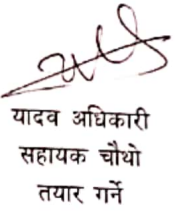 यादव अधिकारी
सहायक चौथो
तयार गर्ने